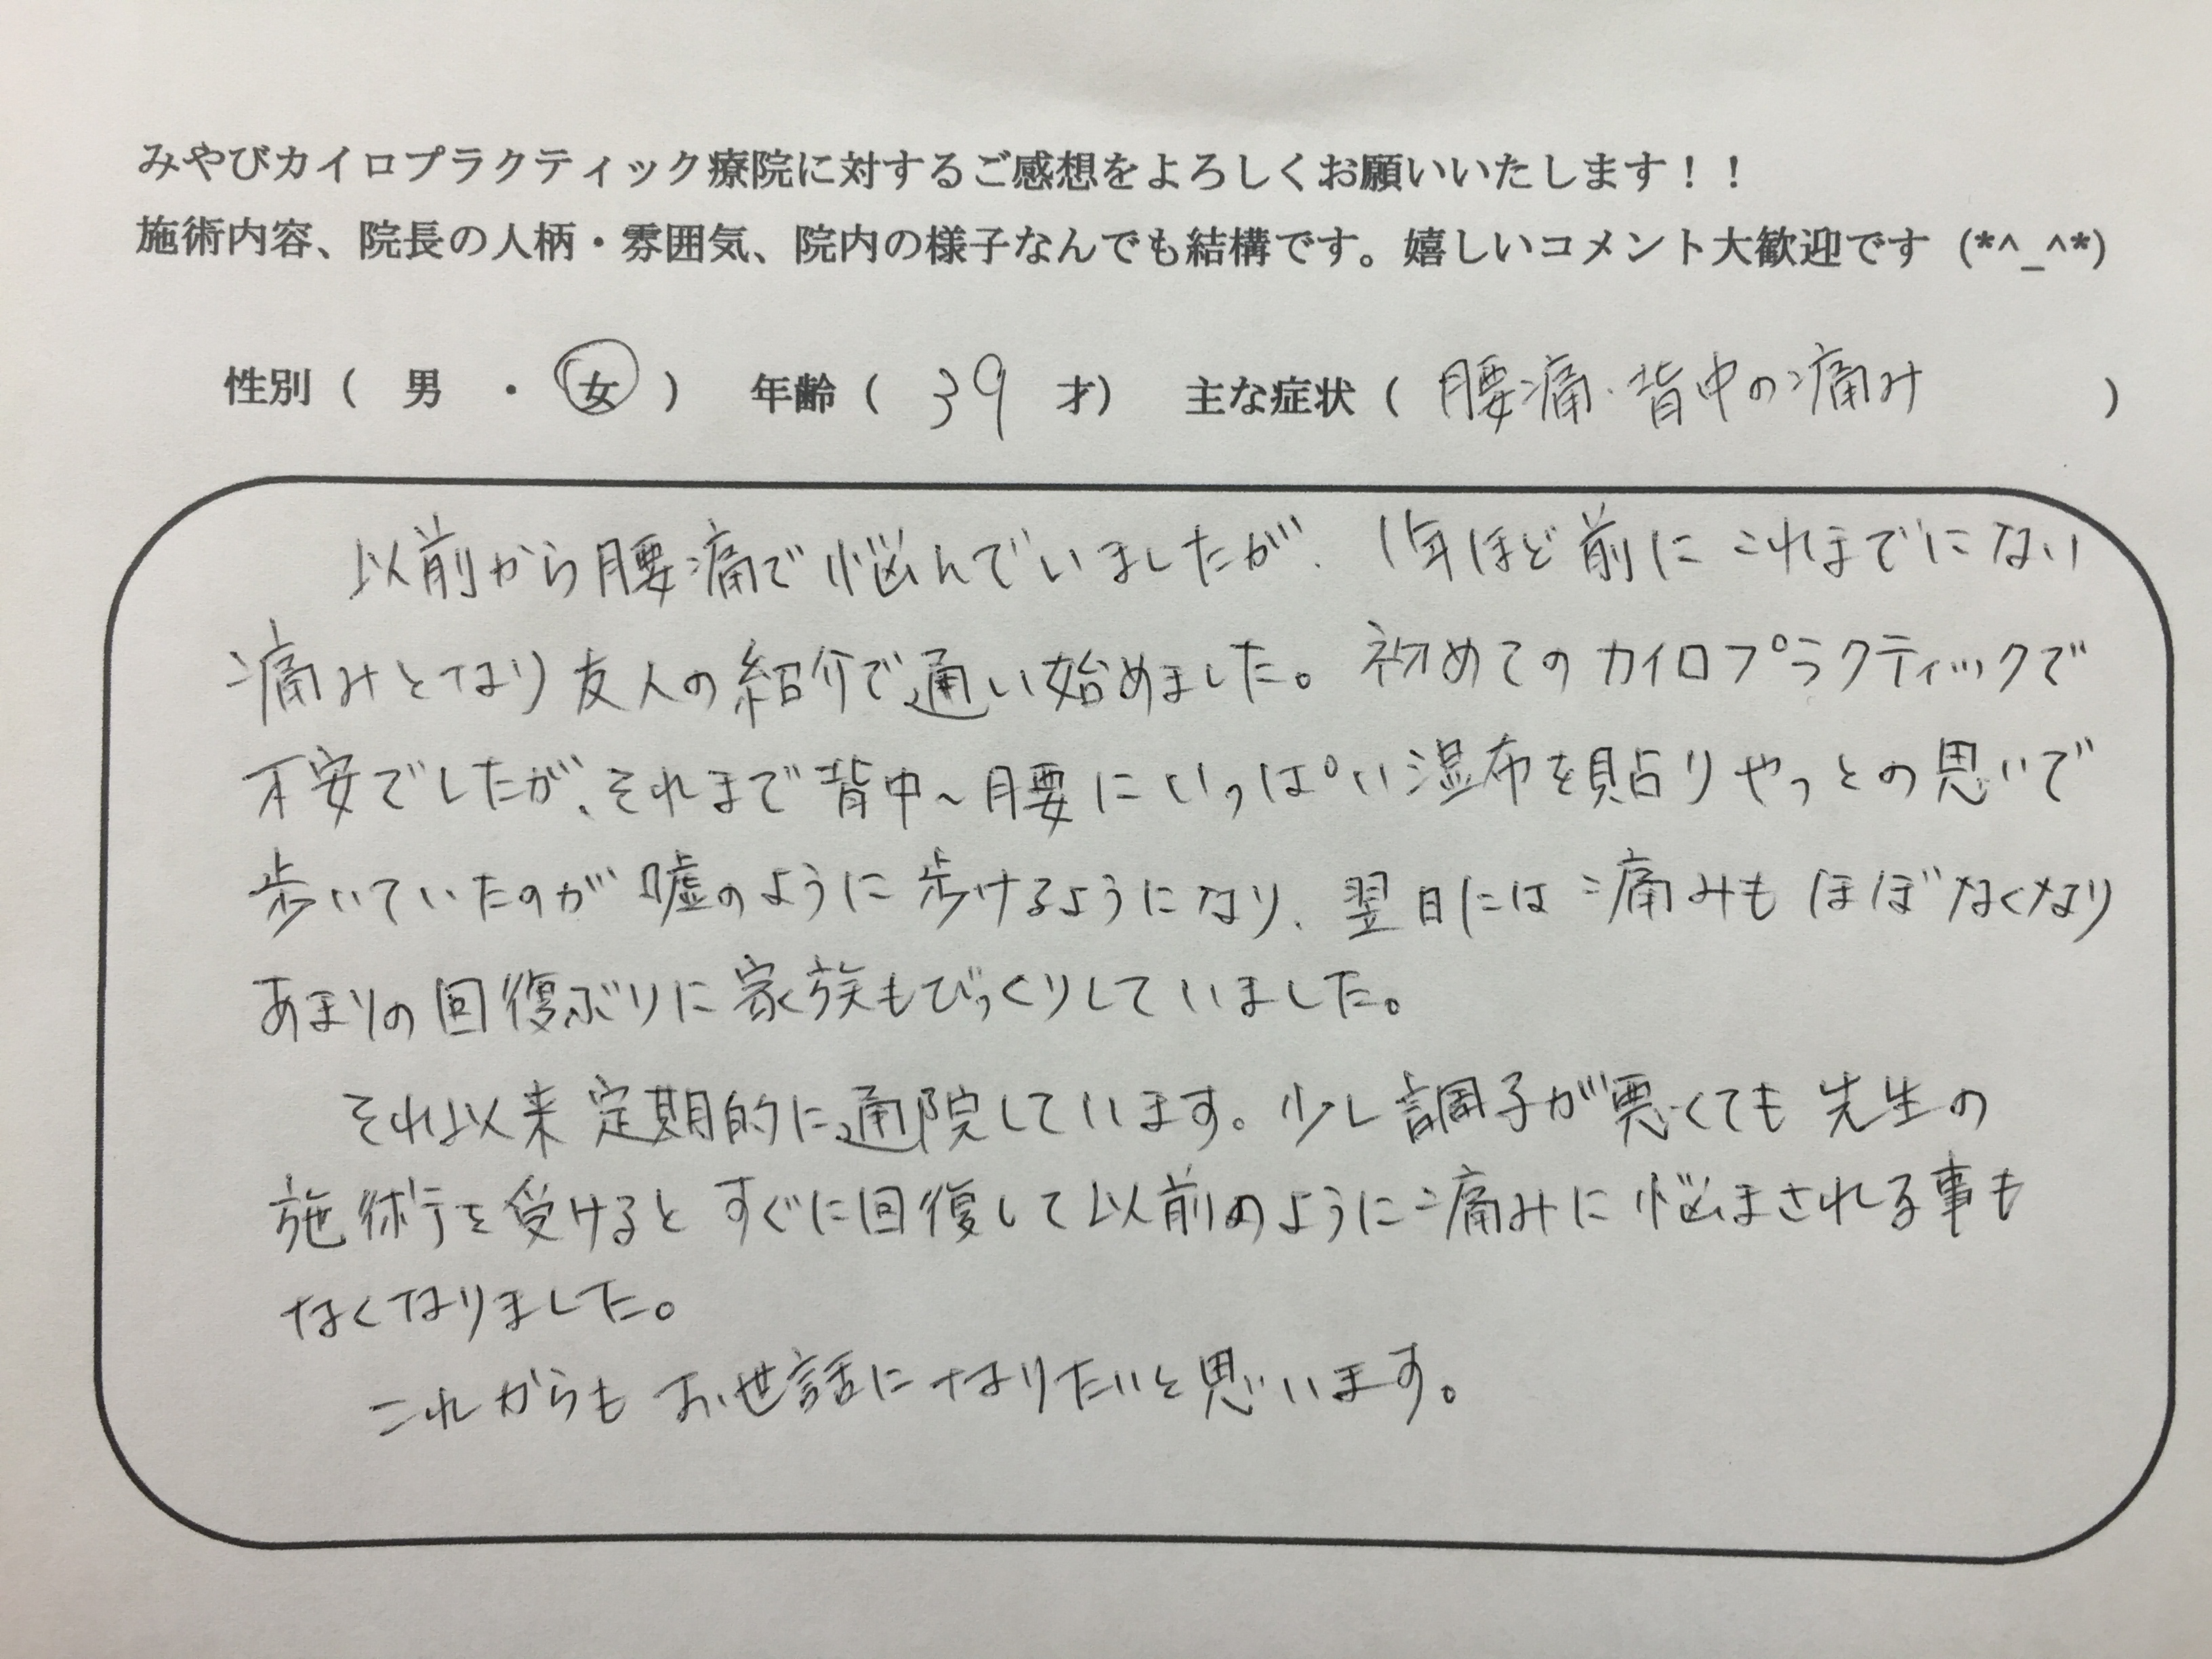 みやびカイロプラクティック療院に対するご感想をよろしくお願いいたします！！
施術内容、院長の人柄・雰囲気、院内の様子なんでも結構です。嬉しいコメント大歓迎です（*^_^*）
性別（　男　・　女　）　年齢（　39　才）　主な症状（　腰痛・背中の痛み　）
以前から腰痛で悩んでいましたが、1年ほど前にこれまでにない
痛みとなり友人の紹介で通い始めました。初めてのカイロプラクティックで
不安でしたが、それまで背中～腰にいっぱい湿布を貼りやっとの思いで
歩いていたのが嘘のように歩けるようになり、翌日には痛みもほぼなくなり
あまりの回復ぶりに家族もびっくりしていました。
それ以来定期的に通院しています。少し調子が悪くても先生の
施術を受けるとすぐに回復して以前のように痛みに悩まされる事も
なくなりました。
これからもお世話になりたいと思います。